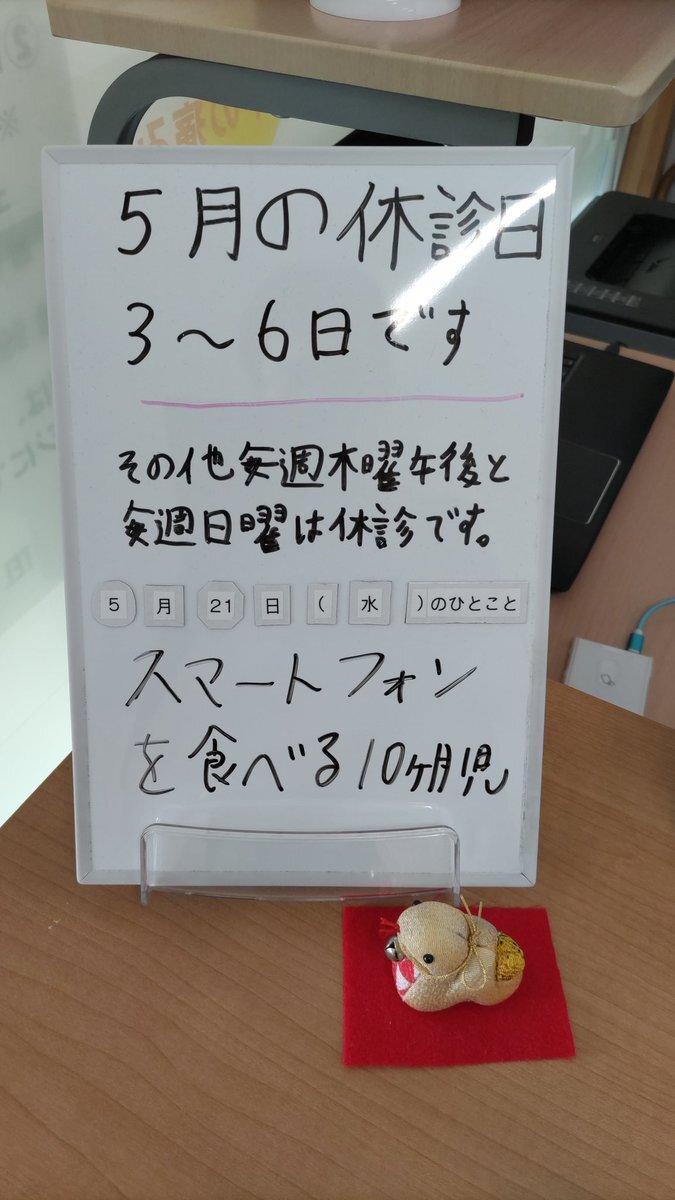 5月の休診日
3〜6日です
その他毎週木曜午後と
毎週日曜は休診です。
5月21日(水)のひとこと
スマートフォン
を食べる10ヶ月児